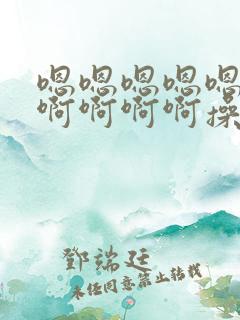 嗯嗯嗯嗯嗯
啊啊啊啊操
鄧端廷
未经同意禁止转载